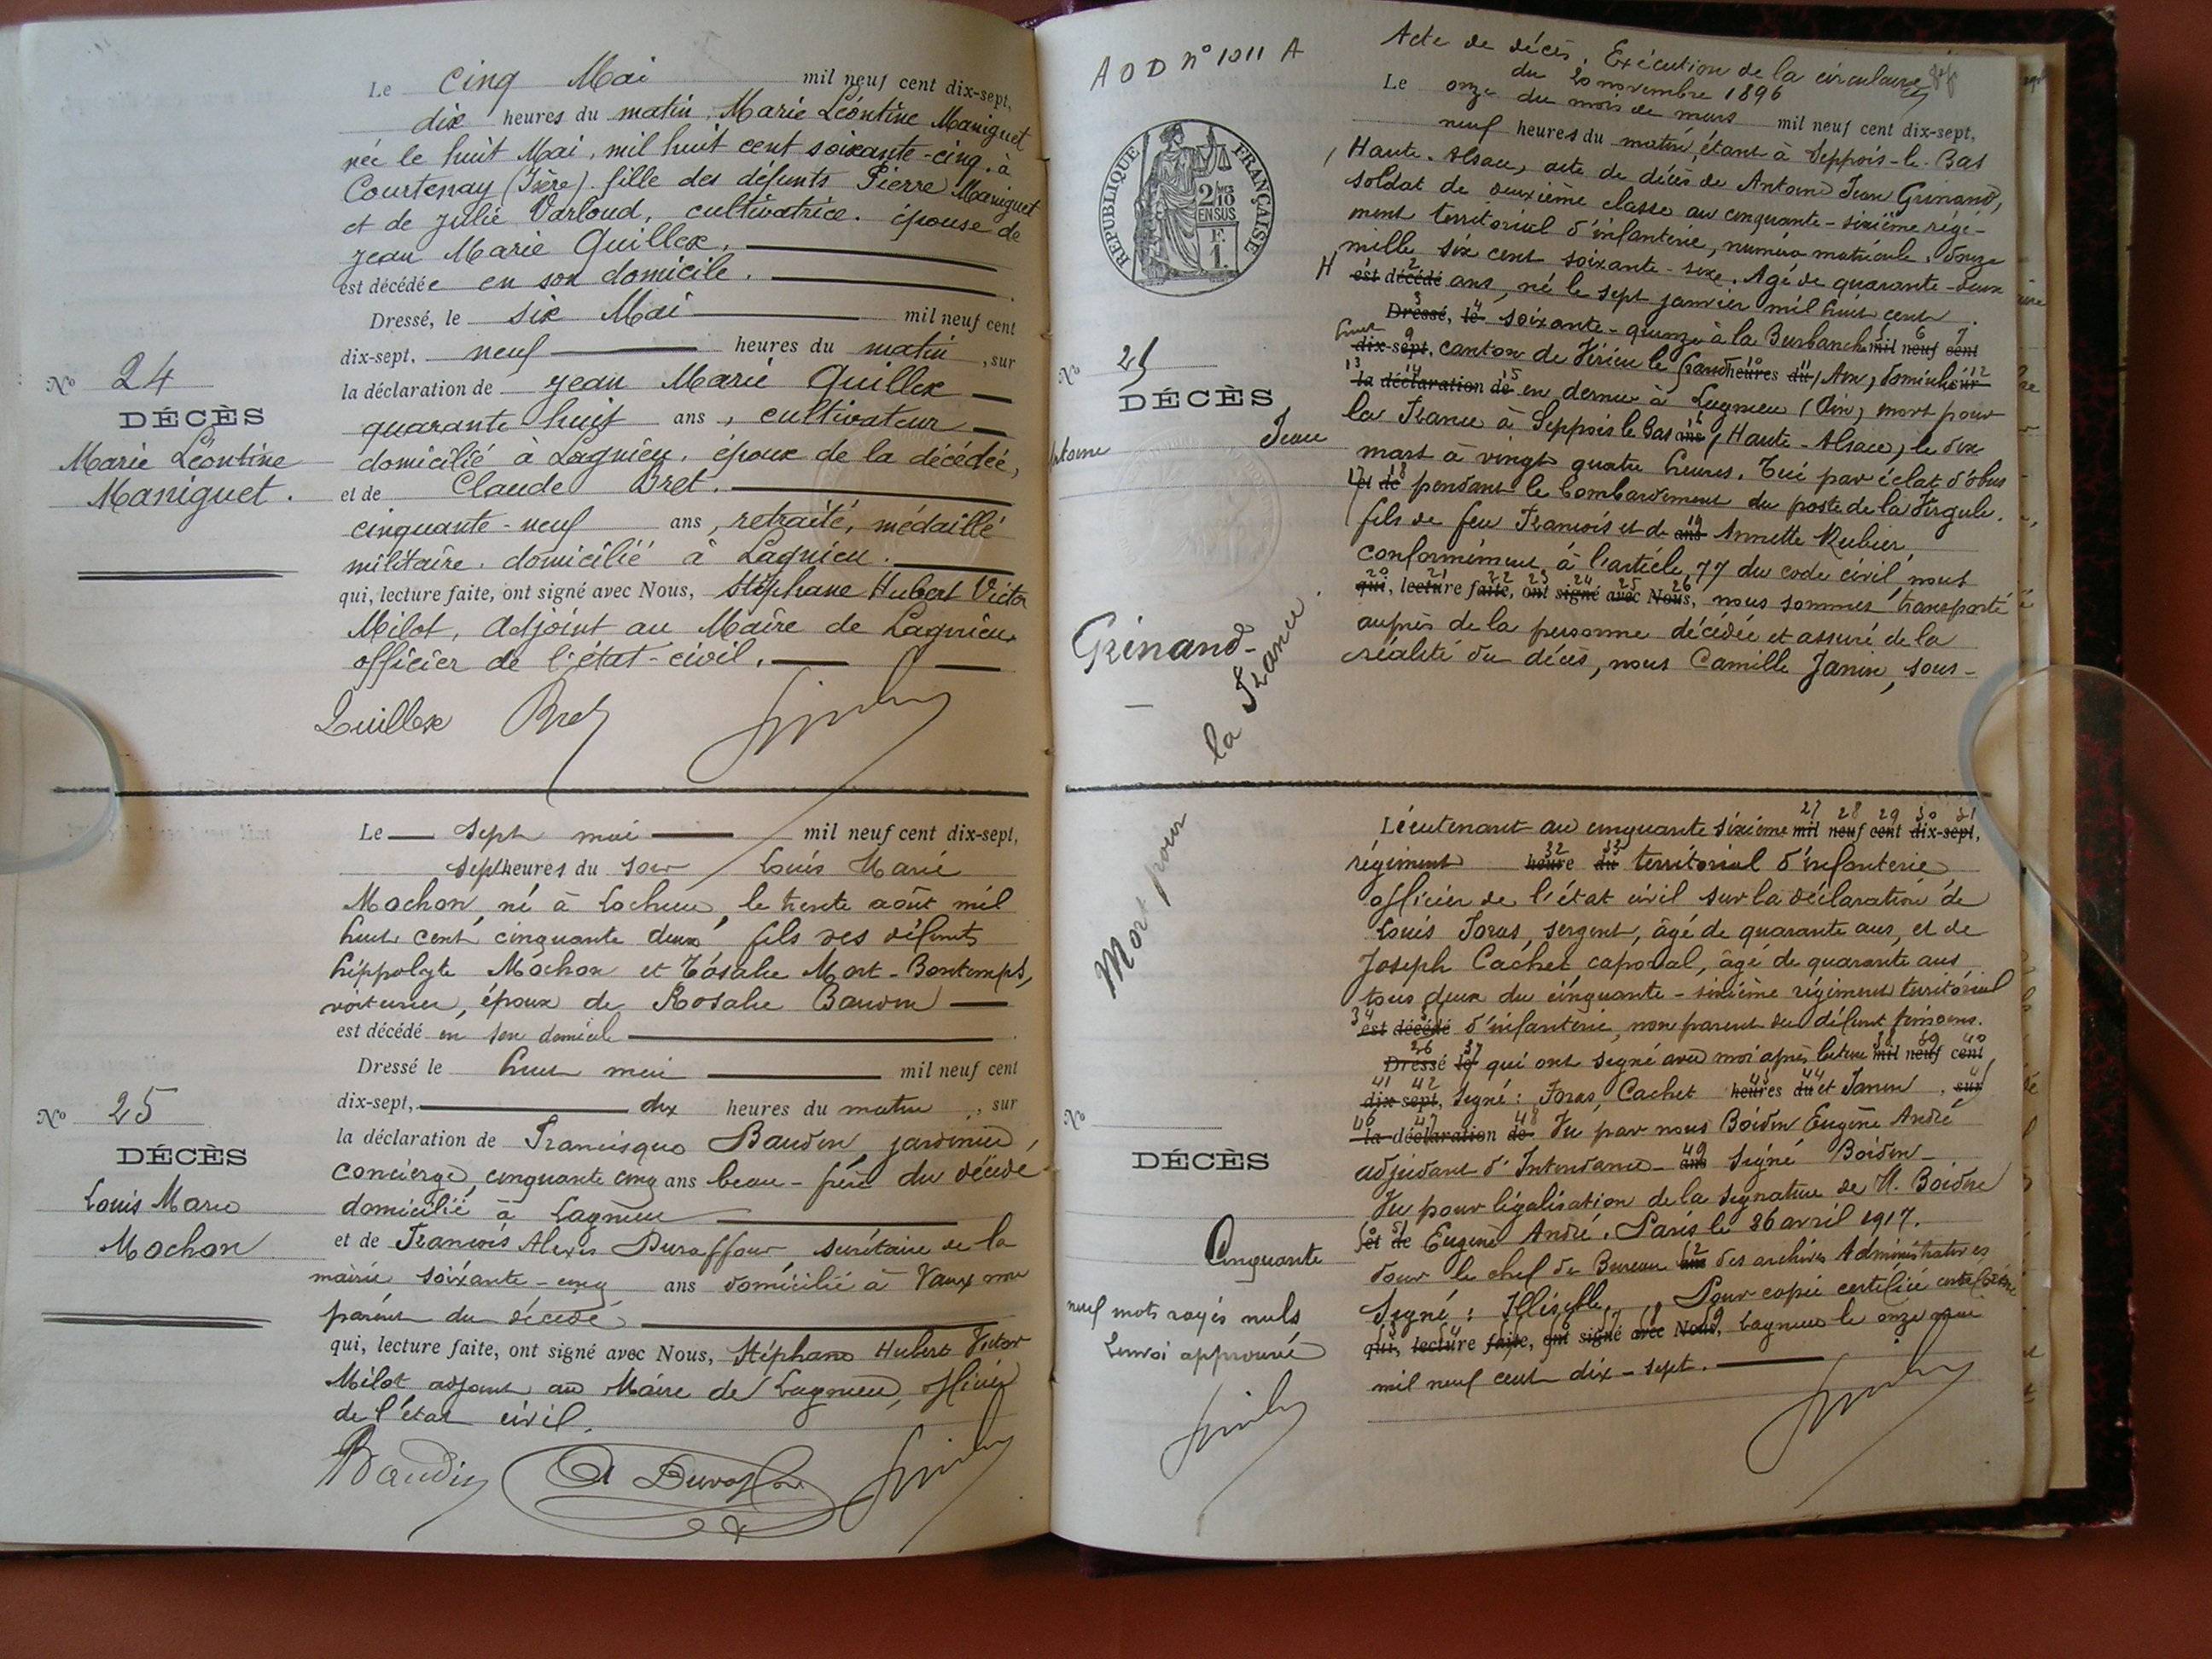 Le cinq Mai mil neuf cent dix-sept,
dix heures du matin, Marie Léontine Maniguet
née le huit Mai, mil huit cent soixante-cinq, à
Courtenay (Isère). fille des défunts Pierre Maniguet
et de Julie Varloud, cultivatrice. épouse de
Jean Marie Quillex,
est décédée en son domicile.
Dressé, le six Mai mil neuf cent
dix-sept, neuf heures du matin, sur
la déclaration de Jean Marie Quillex
quarante huit ans, cultivateur
domicilié à Lagnieu, époux de la décédée,
et de Claude Bret.
cinquante-neuf ans, retraité, médaillé
militaire. domicilié à Lagnieu.
qui, lecture faite, ont signé avec Nous, Stéphane Hubert Victor
Milot, Adjoint au Maire de Lagnieu
officier de l'état-civil.
Quillex Bret
No 24
DÉCÈS
Marie Léontine
Maniguet.
Le sept mai mil neuf cent dix-sept,
sept heures du soir Louis Marie
Mochon, né à Lochieu, le trente août mil
huit cent cinquante deux fils des défunts
hippolyte Mochon et Rosalie Mort-Bontemps,
voiturier, époux de Rosalie Baudin
est décédé en son domicile
Dressé le huit mai mil neuf cent
dix-sept, dix heures du matin, sur
la déclaration de Francisque Baudin, jardinier,
concierge, cinquante cinq ans beau-frère du décédé
domicilié à Lagnieu
et de François Alexis Duraffour secrétaire de la
mairie soixante-cinq ans domicilié à Vaux non
parent du décédé
qui, lecture faite, ont signé avec Nous, Stéphane Hubert Victor
Milot adjoint au Maire de Lagnieu, officier
de l'état civil.
Baudin A Duraffour
No 25
DÉCÈS
Louis Marie
Mochon
A O D N° 1011 A
REPUBLIQUE FRANÇAISE
2/10
EN SUS
F.
1.
No
DÉCÈS
Antoine Jean
Grinand
Mort pour
la France
Acte de décès. Exécution de la circulaire
du 20 novembre 1896
Le onze du mois de mars mil neuf cent dix-sept,
neuf heures du matin, étant à Seppois-le-Bas
Haute-Alsace, acte de décès de Antoine Jean Grinand,
soldat de deuxième classe au cinquante-sixième régi-
ment territorial d'infanterie, numéro matricule, onze
mille six cent soixante-seize. Agé de quarante-deux
est décédé ans, né le sept janvier mil huit cent
Dressé, le soixante-quinze à la Burbanche mil neuf cent
dix-sept, canton de Virieu le Grand heures du, Ain, domicilié sur
la déclaration de en dernier à Lagnieu (Ain) mort pour
la France à Seppois le bas ans (Haute-Alsace) le dix
mars à vingt quatre heures. Tué par éclat d'obus
et de pendant le bombardement du poste de la Virgule.
fils de feu François et de ans Annette Rubier,
conformément à l'article 77 du code civil, nous
qui, lecture faite, ont signé avec Nous, nous sommes transporté
auprès de la personne décédée et assuré de la
réalité du décès, nous Camille Janin, sous-
Lieutenant au cinquante sixième mil neuf cent dix-sept,
régiment heure du territorial d'infanterie
officier de l'état civil sur la déclaration de
Louis Joras, sergent, âgé de quarante ans, et de
Joseph Cachet caporal, âgé de quarante ans
tous deux du cinquante-sixième régiment territorial
est décédé d'infanterie, non parent du défunt témoins.
Dressé le qui ont signé avec moi après lecture mil neuf cent
dix sept, Signé: Joras, Cachet heures du et Janin, sur
la déclaration de Vu par nous Boidin Eugène André
adjudant d'Intendance ans Signé Boidin
Vu pour légalisation de la signature de M. Boidin
et de Eugène André. Paris le 26 avril 1917.
Pour le chef du Bureau ans des archives Administratives
Signé: Illisible. Pour copie certifiée
qui, lecture faite, ont signé avec Nous, Lagnieu le onze mai
mil neuf cent dix-sept.
No
DÉCÈS
Cinquante
neuf mots rayés nuls
Renvoi approuvé